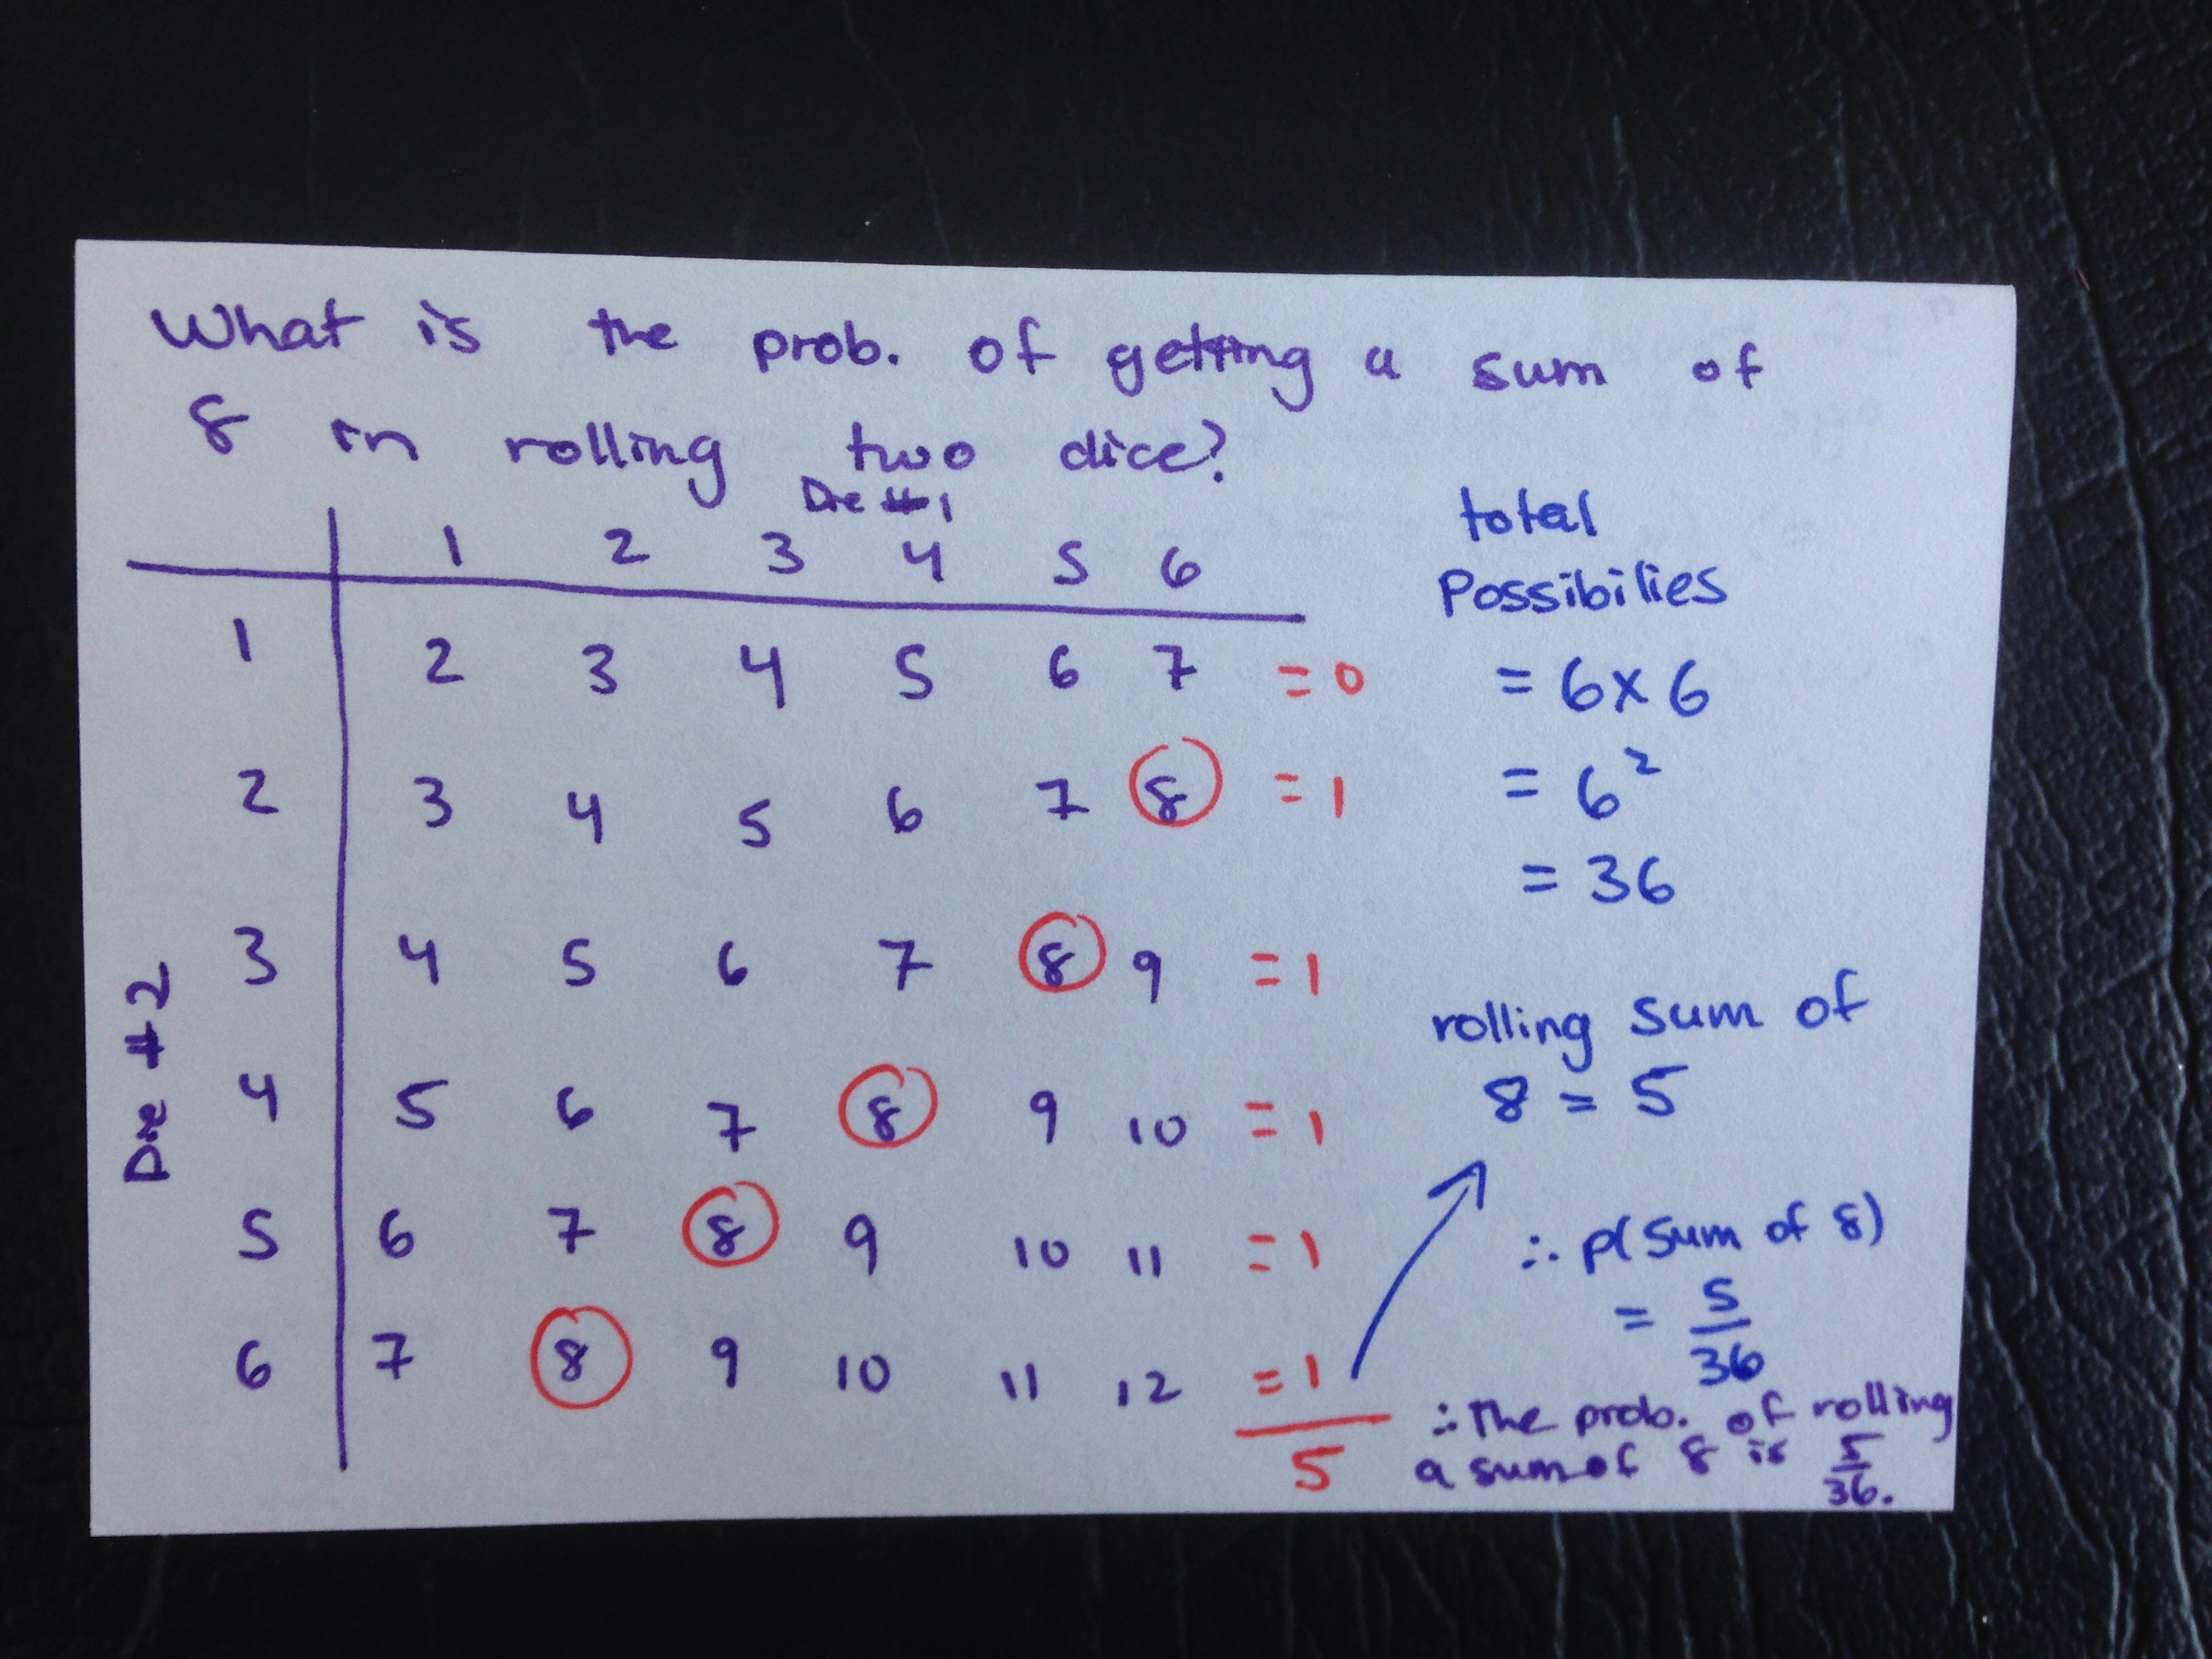 What is the prob. of getting a sum of
8 in rolling two dice?
Die #1
1 2 3 4 5 6
1 2 3 4 5 6 7 = 0
2 3 4 5 6 7 8 = 1
3 4 5 6 7 8 9 = 1
4 5 6 7 8 9 10 = 1
5 6 7 8 9 10 11 = 1
6 7 8 9 10 11 12 = 1
5
Die #2
total
Possibilies
= 6x6
= 6²
= 36
rolling sum of
8 = 5
∴ p(sum of 8)
= 5/36
∴ The prob. of rolling
a sum of 8 is 5/36.